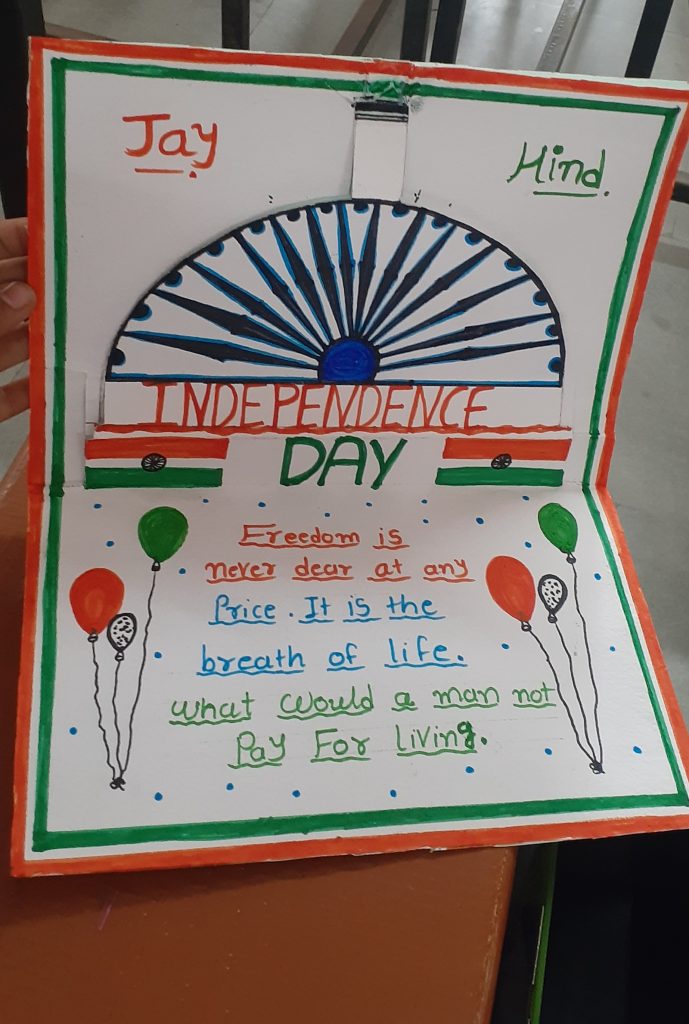 Jay Hind.
INDEPENDENCE
DAY
Freedom is
never dear at any
Price. It is the
breath of life.
what would a man not
Pay For living.